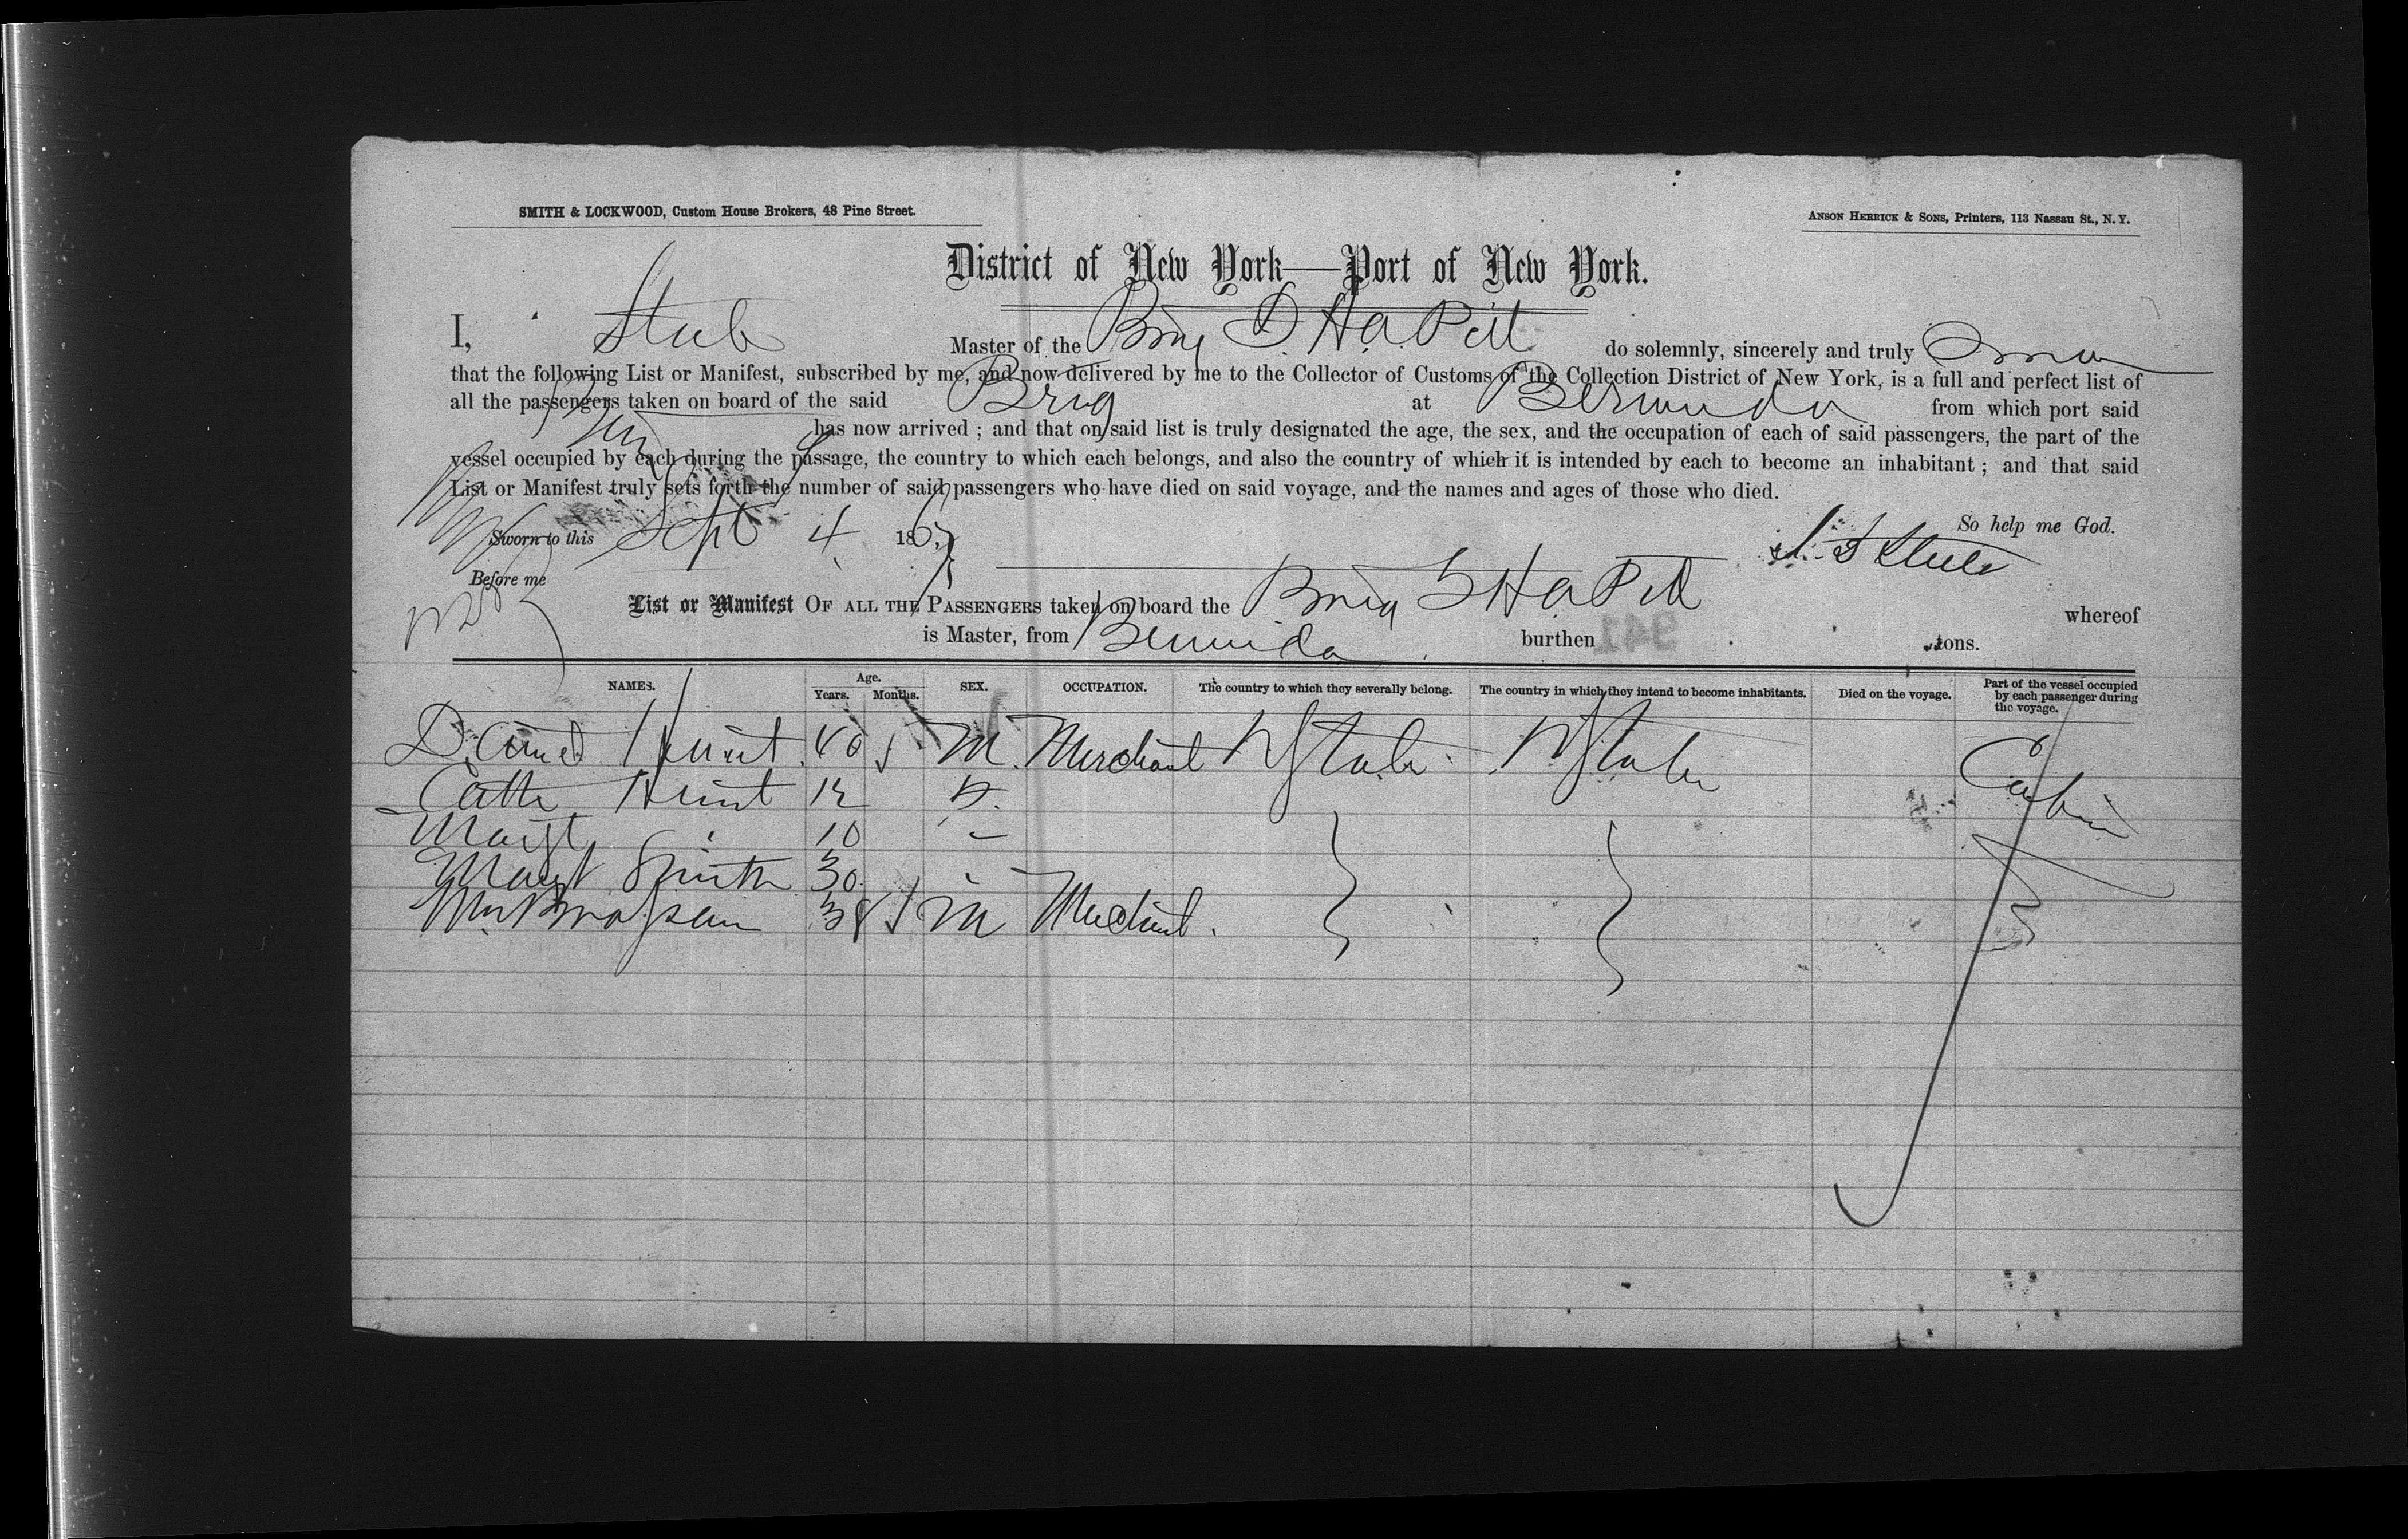 SMITH & LOCKWOOD, Custom House Brokers, 48 Pine Street.
ANSON HERRICK & SONS, Printers, 113 Nassau St., N. Y.
District of New York—Port of New York.
I, Master of the Brig do solemnly, sincerely and truly
that the following List or Manifest, subscribed by me, and now delivered by me to the Collector of Customs of the Collection District of New York, is a full and perfect list of
all the passengers taken on board of the said Brig at Bermuda from which port said
Brig has now arrived ; and that on said list is truly designated the age, the sex, and the occupation of each of said passengers, the part of the
vessel occupied by each during the passage, the country to which each belongs, and also the country of which it is intended by each to become an inhabitant ; and that said
List or Manifest truly sets forth the number of said passengers who have died on said voyage, and the names and ages of those who died.
So help me God.
Sworn to this Sept 4 1867
Before me
List or Manifest OF ALL THE PASSENGERS taken on board the Brig whereof
is Master, from Bermuda burthen tons.
941
NAMES. Age. Years. Months. SEX. OCCUPATION. The country to which they severally belong. The country in which they intend to become inhabitants. Died on the voyage. Part of the vessel occupied by each passenger during the voyage.
Hunt 40 M. Merchant Cabin
Cath Hunt 12
Margt 10
Margt Smith 30
38 M Merchant.